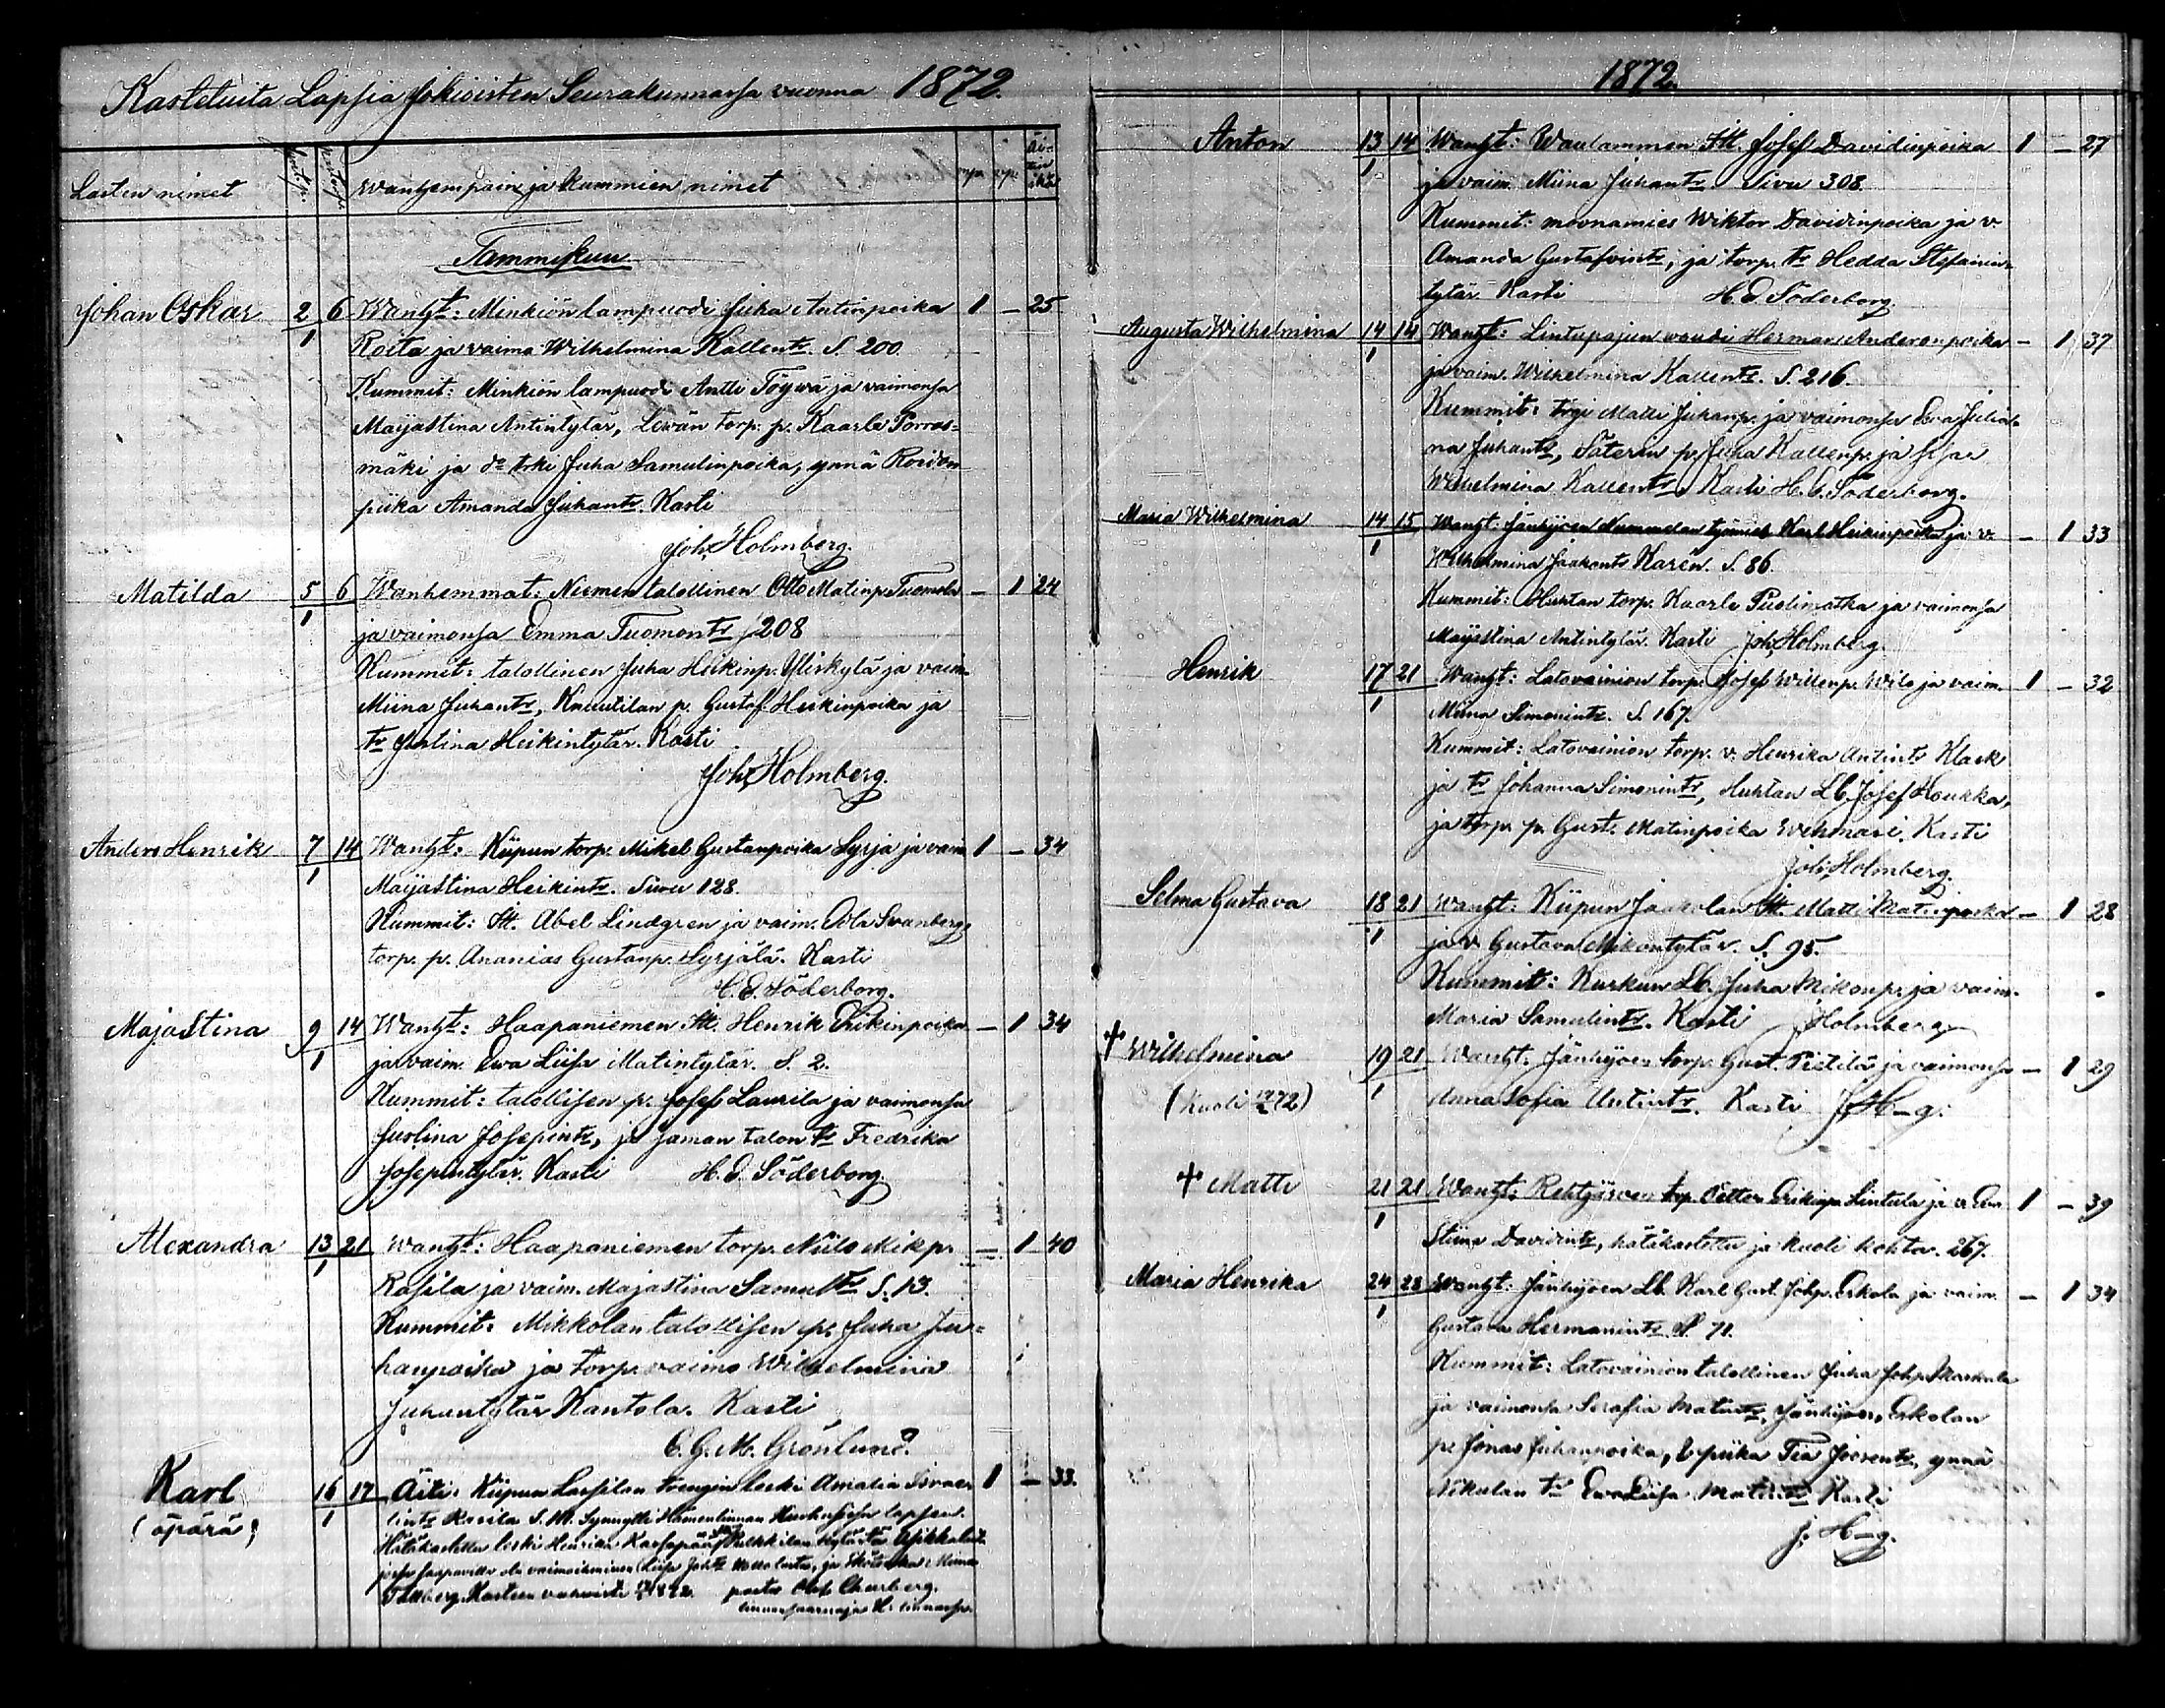 Kastetuita Lapsia Jokioisten Seurakunnassa vuonna 1872.
Lasten nimet
Wanhempain ja Kummien nimet
Äitin ikä
Tammikuu
Johan Oskar 2/1 6 Wanht: Minkiön lampuodi Juha Antinpoika 1 – 25
Roita ja vaimo Wilhelmina Kallentr. S. 200
Kummit: Minkiön lampuodi Antti Töywä ja vaimonsa
Maijastina Antintytär, Lewän torp. p. Kaarle Porras-
mäki ja do trki Juha Samulinpoika, ynnä
piika Amanda Juhantr. Kasti
Joh. Holmberg.
Matilda 5/1 6 Wanhemmat: Niemen talollinen Otto Matinp. Tuomola – 1 24
ja vaimonsa Emma Tuomontr S 208
Kummit: talollinen Juha Heikinp. Yliskylä ja vaim.
Miina Juhantr, p. Gustaf Heikinpoika ja
tr Justina Heikintytär. Kasti
Joh. Holmberg.
Anders Henrik 7/1 14 Wanht: Kiipun torp. Mikel Gustanpoika Syrjä ja vaim 1 – 34
Maijastina Heikintr. Siwu 128.
Kummit: Itl. Abel Lindgren ja vaim. Swanberg,
torp. p. Ananias Gustanp. Syrjälä. Kasti
H. E. Söderborg.
Majastina 9/1 14 Wanht: Haapaniemen Itl. Henrik Erikinpoika – 1 34
ja vaim. Ewa Liisa Matintytär. S. 2.
Kummit: talollisen p. Josef Laurila ja vaimonsa
Justina Josepintr, ja saman talon tr Fredrika
Josepintytär. Kasti H. E. Söderborg
Alexandra 13/1 21 Wanht: Haapaniemen torp. Niilo Mikp. – 1 40
Rasila ja vaim. Majastina Samultr S. 13.
Kummit: Mikkolan talollisen p. Juha Ju-
hanpoika ja torp. vaimo Wilhelmina
Juhantytär Kantola. Kasti
C. G. M. Grönlund.
Karl 16/1 17 Äiti: Kiipun Lassilan trengin leski Amalia Israe- 1 – 33.
(äpärä) lintr Rasila S. Synnytti Hämenlinnan lapsen.
Hätäkastettu leski Henrika
Liisa Miina
Tallberg. Kasteen vahwisti 1872. pastor Churberg.
linnansaarnaaja H: linnassa.
1872.
Anton 13/1 14 Wanht: Waulammen Itl. Josef Davidinpoika 1 – 27
ja vaim. Miina Juhantr Sivu 308.
Kummit: moonamies Wiktor Davidinpoika ja v.
Amanda Gustafvintr, ja torp. tr Hedda Stefanin-
tytär. Kasti H. E. Söderborg.
Augusta Wilhelmina 14/1 14 Wanht: Lintupajun woudi Herman Andersinpoika – 1 37
ja vaim. Wilhelmina Kallentr. S. 216.
Kummit: Matti Juhanp. ja vaimonsa Eva Julia-
na Juhantr, Säterin p. Juha Kallenp. ja
Wilhelmina Kallentr. Kasti H. E. Söderborg.
Maria Wilhelmina 14/1 15 Wanht: Jänhijoen Nummelan työmies Karl Heikinpoika ja v. – 1 33
Wilhelmina Jaakontr Karén. S. 86.
Kummit: Huhtan torp. Kaarle Puolimatka ja vaimonsa
Maijastina Antintytär. Kasti Joh. Holmberg.
Henrik 17/1 21 Wanht: Latovainion torp. Josef Willenp. Wilo ja vaim. 1 – 32
Miina Simonintr. S. 167.
Kummit: Latovainion torp. v. Henrika Antintr Klark
ja tr Johanna Simonintr, Huhtan Lb. Josef Koukka,
ja torp. p. Gust. Matinpoika Wehmasi. Kasti
Joh. Holmberg.
Selma Gustava 18/1 21 Wanht: Kiipun Jaakolan Itl. Matti Matinpoika – 1 28
ja v. Gustava Mikontytär. S. 95.
Kummit: Kurkun Lb. Juha Mikonp. ja vaim.
Maria Samulintr. Kasti J Holmberg
† Wilhelmina 19/1 21 Wanht: Jänhijoen torp. Gust. Pietilä ja vaimonsa – 1 29
(kuoli 1872) Anna Sofia Antintr. Kasti J. H–g.
† Matti 21/1 21 Wanht: Rehtijärven torp. Erikinp. Lintula ja v. Eva 1 – 39
Stiina Davidintr, hätäkastettu ja kuoli kohta. 267.
Maria Henrika 24/1 28 Wanht: Jänhijoen Lb. Karl Gust. Johp. Eskola ja vaim. – 1 34
Gustava Hermanintr. S. 71.
Kummit: Latovainion talollinen Juha Johp. Markula
ja vaimonsa Serafia Matintr, Jänhijoen, Eskolan
p. Jonas Juhanpoika, piika Tea ynnä
Nikulan tr Ewa Liisa Matintr. Kasti
J. H–g.